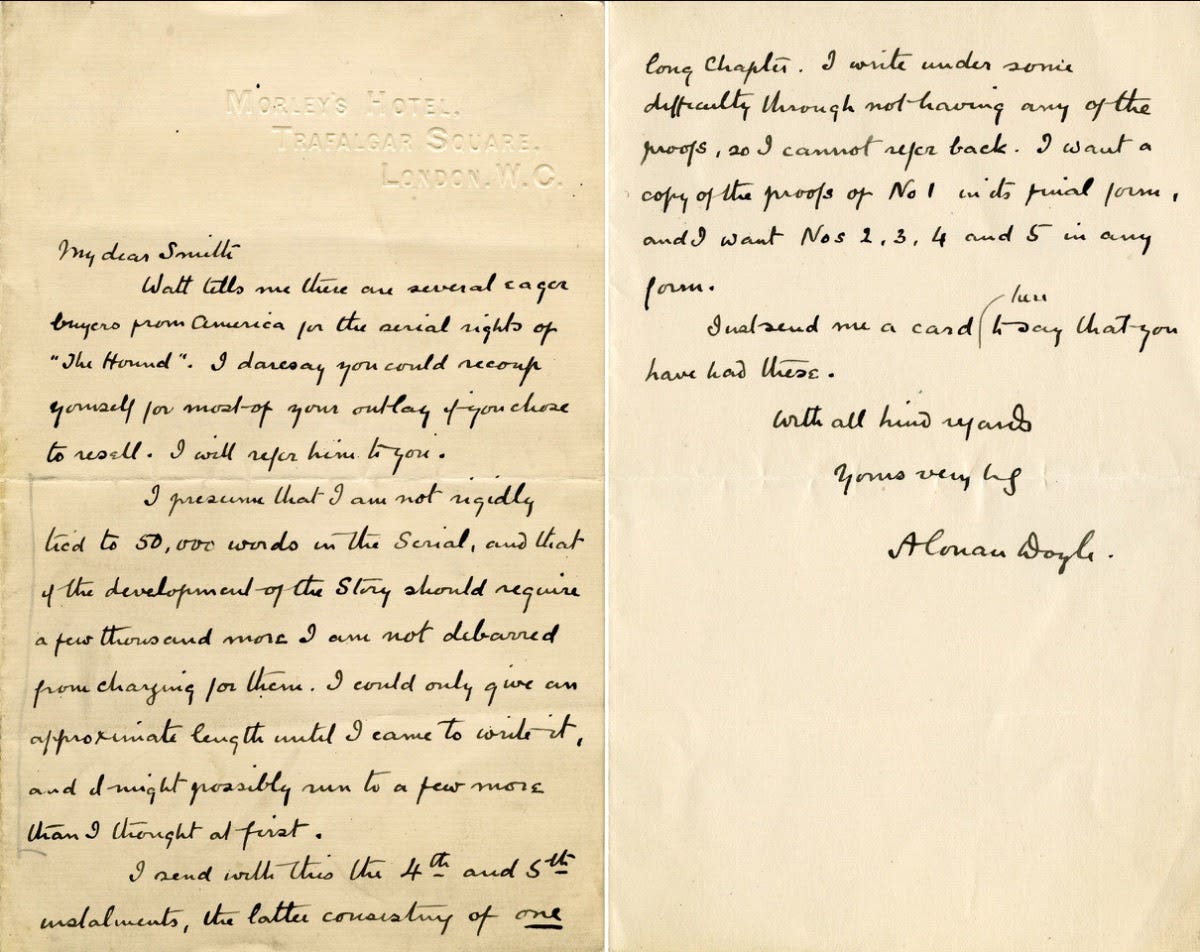 MORLEY'S HOTEL.
TRAFALGAR SQUARE.
LONDON. W.C.
My dear Smith
Watt tells me there are several eager
buyers from America for the serial rights of
"The Hound". I daresay you could recoup
yourself for most of your outlay if you chose
to resell. I will refer him to you.
I presume that I am not rigidly
tied to 50,000 words in the Serial, and that
if the development of the Story should require
a few thousand more I am not debarred
from charging for them. I could only give an
approximate length until I came to write it,
and it might possibly run to a few more
than I thought at first.
I send with this the 4th and 5th
instalments, the latter consisting of one
long Chapter. I write under some
difficulty through not having any of the
proofs, so I cannot refer back. I want a
copy of the proofs of No 1 in its final form,
and I want Nos 2, 3, 4 and 5 in any
form.
here
Just send me a card to say that you
have had these.
With all kind regards
Yours very
A Conan Doyle.